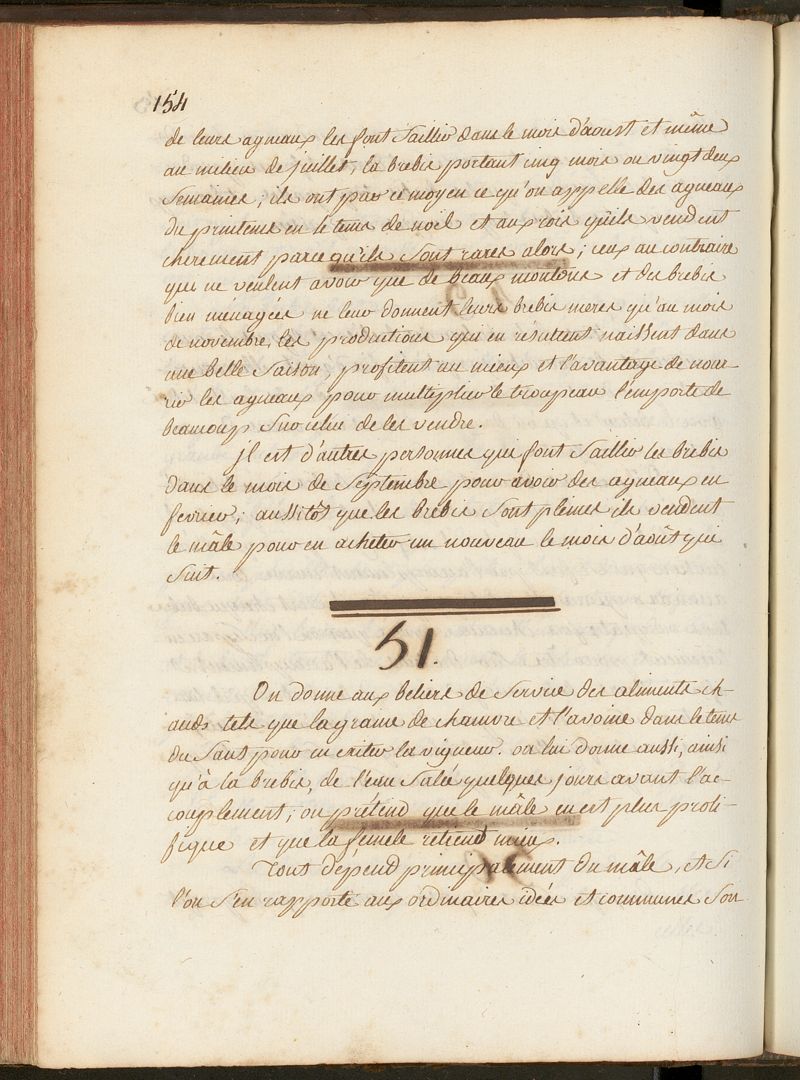 154
de leurs agneaux les font saillir dans le mois d'aoust et même
au milieu de juillet, la brebis portant cinq mois ou vingt deux
semaines; ils ont par ce moyen ce qu'on appelle des agneaux
du printems en le tems de noël et aux rois qu'ils vendent
cherement parce qu'ils sont rares alors; ceux au contraire
qui ne veulent avoir que de beaux moutons et des brebis
bien ménagées ne leur donnent leurs brebis meres qu'au mois
de novembre, les productions qui en résultent naissent dans
une belle saison, profitent au mieux et l'avantage de nour-
rir les agneaux pour multiplier le troupeau l'emporte de
beaucoup sur celui de les vendre.
jl est d'autres personnes qui font saillir les brebis
dans le mois de septembre pour avoir des agneaux en
fevrier; aussitôt que les brebis sont pleines ils vendent
le mâle pour en acheter un nouveau le mois d'août qui
suit.
51.
On donne aux beliers de service des aliments ch-
auds tels que la graine de chanvre et l'avoine dans le tems
du saut pour en exciter la vigueur. on lui donne aussi, ainsi
qu'à la brebis, de l'eau salée quelques jours avant l'ac-
couplement; on prétend que le mâle en est plus proli-
fique et que la femele retient mieux.
Tout dépend principalement du mâle, et si
l'on s'en rapporte aux ordinaires idées et communes son